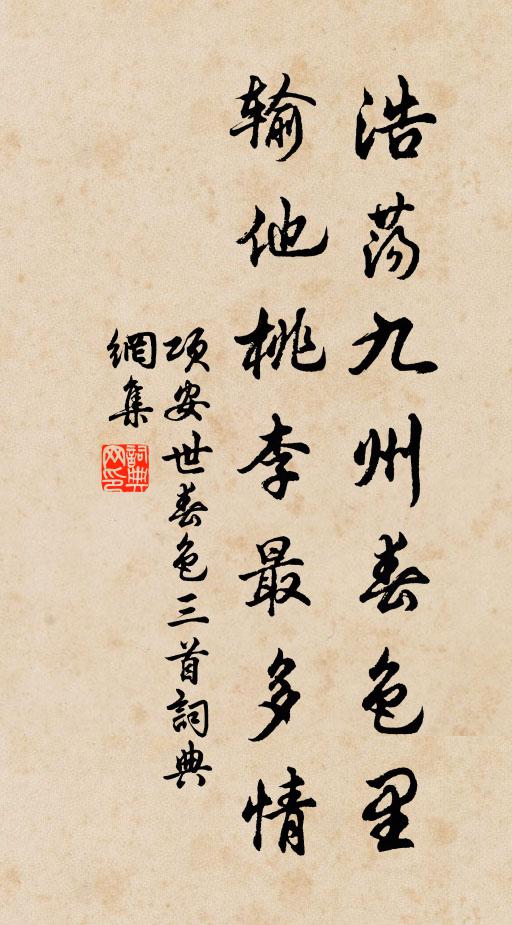 浩荡九州春色里
输他桃李最多情
项安世春色三首詞典
網集
詞典网印